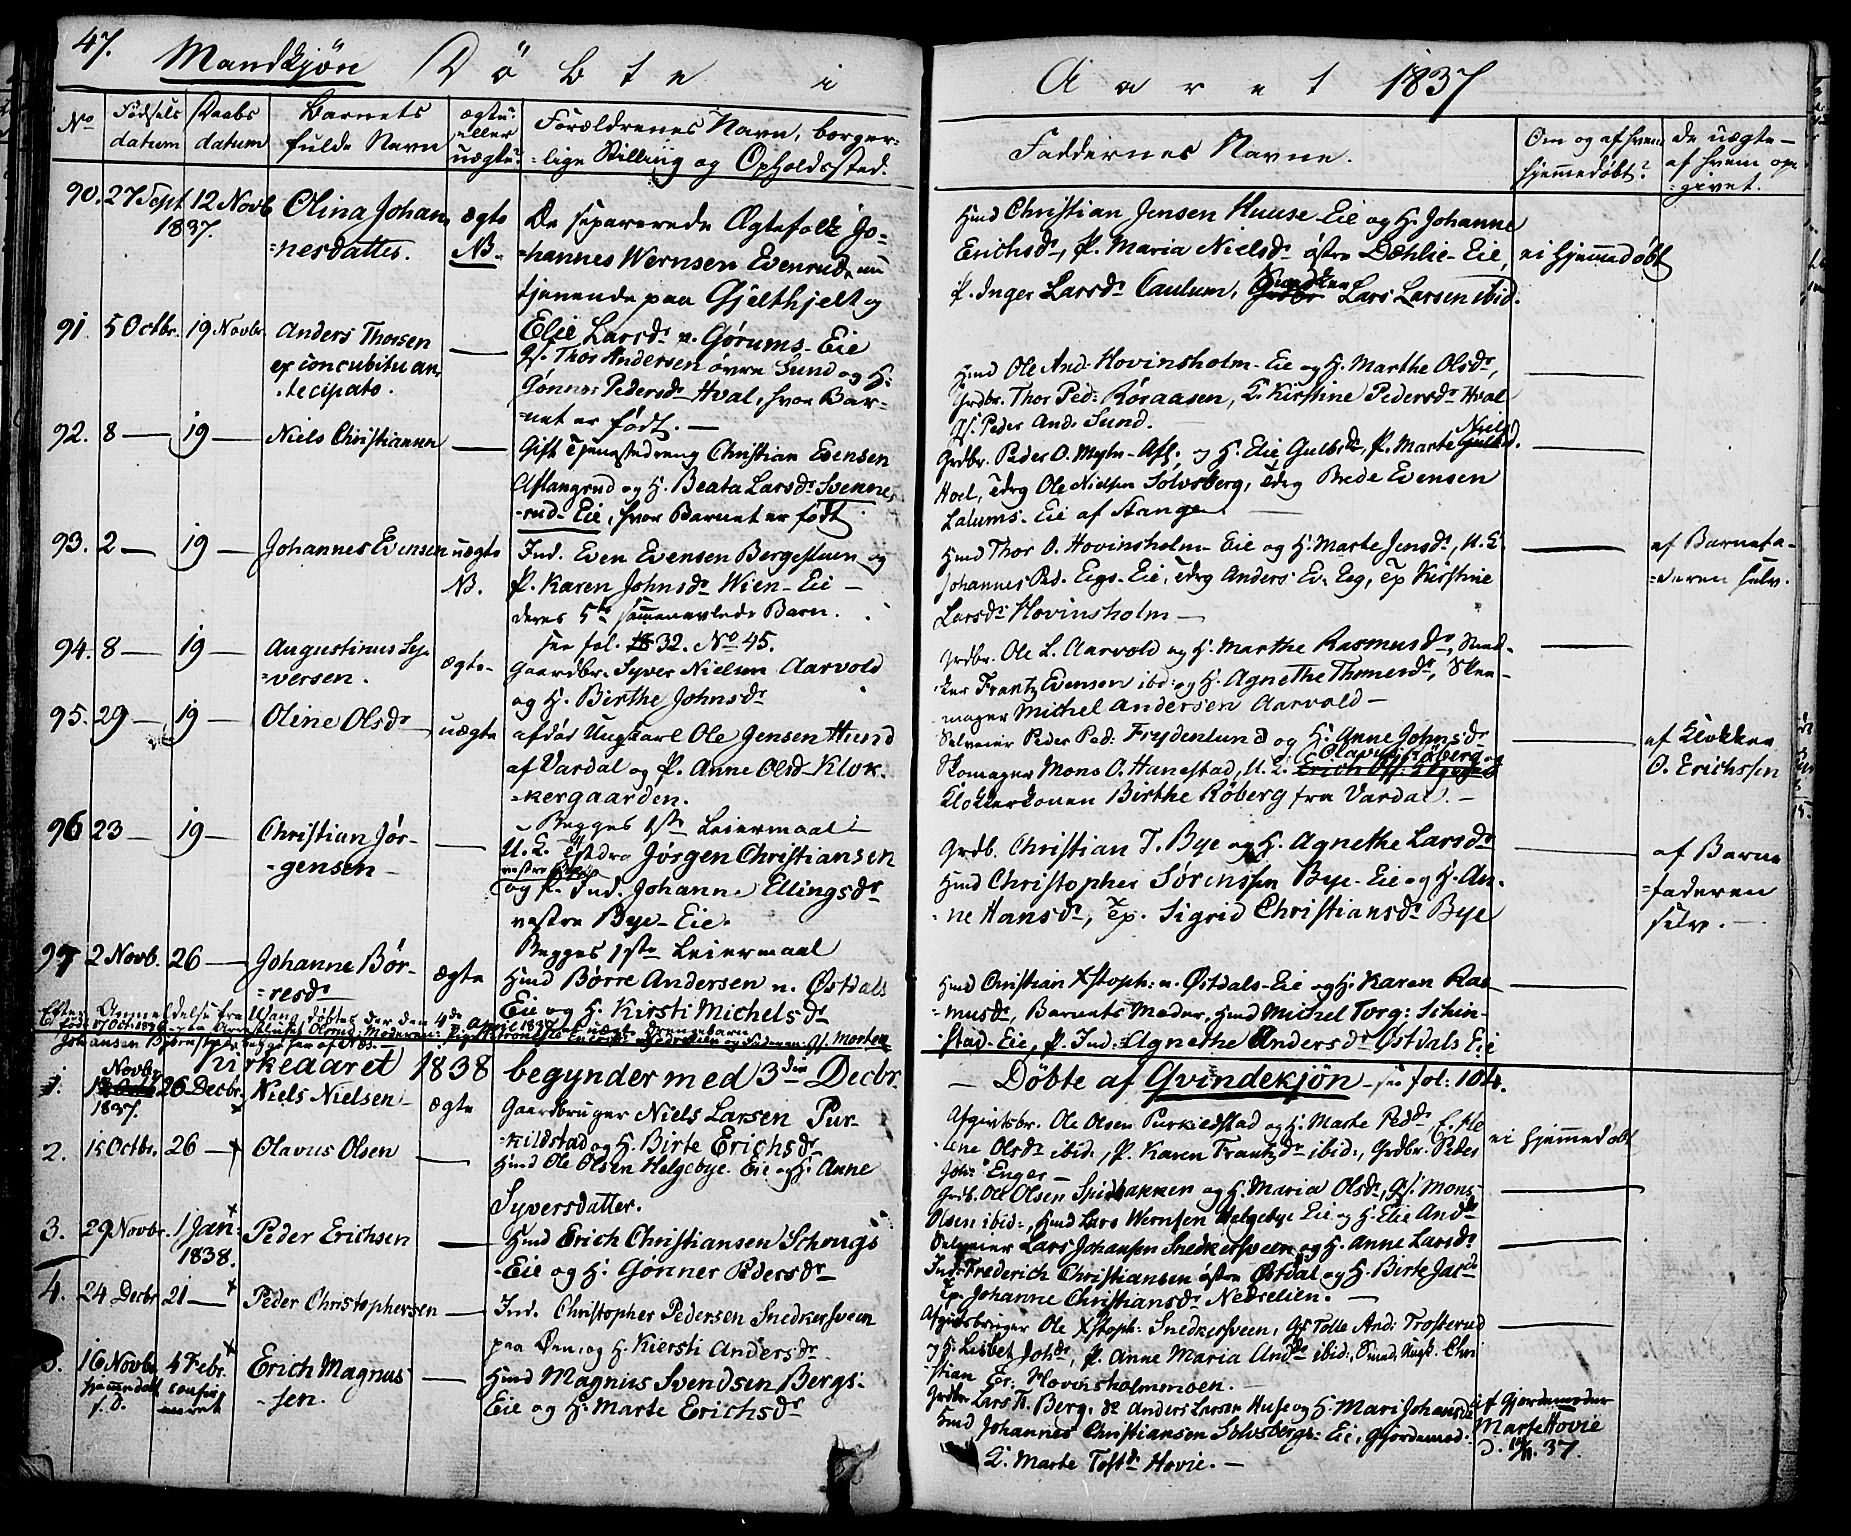 47. Mandkjön Döbte i
Aaret 1837
No
Födsels datum
Daabs datum
Barnets fulde Navn
ægte eller uægte?
Forældrenes Navn, borger-
lige Stilling og Opholdssted.
Faddernes Navne.
Om og af hvem hjemmedøbt?
De uægte af hvem op-
givet.
90. 27 Sept 1837. 12 Novb Olina Johan-
nesdatter.
ægte
NB.
De separerede Ægtefolk Jo-
hannes Wernsen Evenrud, nu
tjenende paa Gjelthjelt og
Elie Larsdr n. Gørums-Eie
Hmd Christian Jensen Huuse-Eie og H. Johanne
Erichsdr, P. Maria Nielsdr östre Dæhlie-Eie,
P. Inger Larsdr Caulum, Lars Larsen ibid.
ei hjemmedøbt
91. 5 Octbr. 19 Novbr Anders Thorsen
ex concubitu an-
tecipato.
Gf. Thor Andersen övre Sund og H:
Gønner Pedersdr Hval, hvor Bar-
net er född. —
Hmd Ole And: Hovinsholm-Eie og H. Marthe Olsdr,
Grdbr. Thor Ped: Røraasen, P. Kirstine Pedersdr Hval
Gf. Peder And: Sund.
92. 8 — 19 — Niels Christiansen
Gift Tjenestedreng Christian Evensen
Aslangrud og H. Beata Larsdr Svenne-
rud-Eie, hvor Barnet er född
Grdbr. Peder O. Mehr-Afl: og H. Elie Gulbrdr, P. Marte Niels
Hoel, Tdrg Ole Nielsen Solvsberg, Tdrg Brede Evensen
Lalums-Eie af Stange
93. 2 — 19 — Johannes Evensen uægte
NB.
Ind. Even Evensen Bergestuen og
P. Karen Johnsdr Wien-Eie —
deres 5te sammenavlede Barn.
see fol. 32. No 45.
Hmd Thor O. Hovinsholm-Eie og H. Marte Jensdr, U. K.
Johannes Ped. Eegs-Eie, Tdrg Anders Ev: Eeg, Tp Kirstine
Larsdr Hovinsholm —
af Barnefa-
deren selv.
94. 8 — 19 — Augustinus Sy-
versen.
ægte
Gaardbr. Syver Nielsen Aarvold
og H. Birthe Johnsdr
Grdbr. Ole L. Aarvold og H. Marthe Rasmusdr, Sned-
ker Frantz Evensen ibid: og H. Agnethe Thomesdr, Skoe-
mager Michel Andersen Aarvold —
95. 29 — 19 — Oline Olsdr uægte
afdøs Ungkarl Ole Jensen Hund
af Vardal og P. Anne Olsdr Klok-
kergaarden.
Begges 1ste Leiermaal
Selveier Peder Ped: Frydenlund og H: Anne Johnsdr
Skomager Mons O. Hanestad, U. K. Olavus Røberg og
Klokkerkonen Birthe Røberg fra Vardal. —
af Klokker
O. Erichsen
96 23 — 19 — Christian Jör-
gensen —
U. K. Tjstdrg Jørgen Christiansen
og P. Ind. Johanne Ellingsdr
vestre Bye-Eie.
Begges 1ste Leiermaal
Grdb. Christian T. Bye og H. Agnethe Larsdr
Hmd Christopher Sørenssen Bye-Eie og H. An-
ne Hansdr, Tp. Sigrid Christiansdr Bye
af Barne
faderen
selv. —
97 2 Novb. 26 — Johanne Bör-
resdr
ægte
Hmd Børre Andersen n. Østdals
Eie og H. Kirsti Michelsdr
Hmd Christian Xstoph: n. Østdals-Eie og H. Karen Ras-
musdr, Barnets Moder, Hmd Michel Torg: Schin-
stad-Eie, P. Ind: Agnethe Andersdr Østdals Eie
Efter Anmeldelse fra Vang döbtes der den 4de April 1837
Kirkeaaret 1838 begynder med 3die Decbr.
— Döbte af Qvindekjön — see fol: 104.
1. Novbr 1837. 26 Decbr. Niels Nielsen — ægte
Gaardbruger Niels Larsen Pur-
kildstad og H. Birte Erichsdr
Afgivtsbr. Ole Olsen Purkildstad og H. Marte Pedr, P. He-
lene Olsdr ibid:, P. Karen Frantzdr ibid:, Grdbr. Peder
Joh: Enger —
ei hjemmedøbt
2. 15 Octbr. 26 — Olavus Olsen
Hmd Ole Olsen Helgebye-Eie og H: Anne
Syversdatter.
Grdb. Ole Olsen Spidsbakken og H. Maria Olsdr, Gf. Mons
Olsen ibid:, Hmd Lars Wernsen Helgebye Eie og H. Elie Andr
3. 29 Novbr. 1 Jan: 1838. Peder Erichsen
Hmd Erich Christiansen Schougs
-Eie og H. Gønner Pedersdr
Selveier Lars Johansen Snedkersveen og H. Anne Larsdr
Ind: Frederich Christiansen östre Østdal og H. Birte Jacdr
Tp. Johanne Christiansdr Nedrelien. —
4. 24 Decbr 21 — Peder Christophersen
Ind. Christopher Pedersen Snedkersveen
paa Øen, og H. Kiersti Andersdr
Afgivtsbruger Ole Xstoph: Snedkersveen, Gf Tolle And: Trosterud
og H. Lisbet Johdr, P. Anne Maria Andr ibid:, Smed Ungk. Chri-
stian Er: Hovinsholmmoen. —
5. 16 Novbr 4 Febr. Erich Magnus-
sen.
Hmd Magnus Svendsen Bergs-
Eie og H. Marte Erichsdr
Grdbr Lars H. Berg, do Anders Larsen Huse og H. Mari Johansdr
Hmd Johannes Christiansen Solvsbergs-Eie, Gjordemod:
E. Marte Tostdr Hovie. —
af Gjordemoder
Marte Hovie